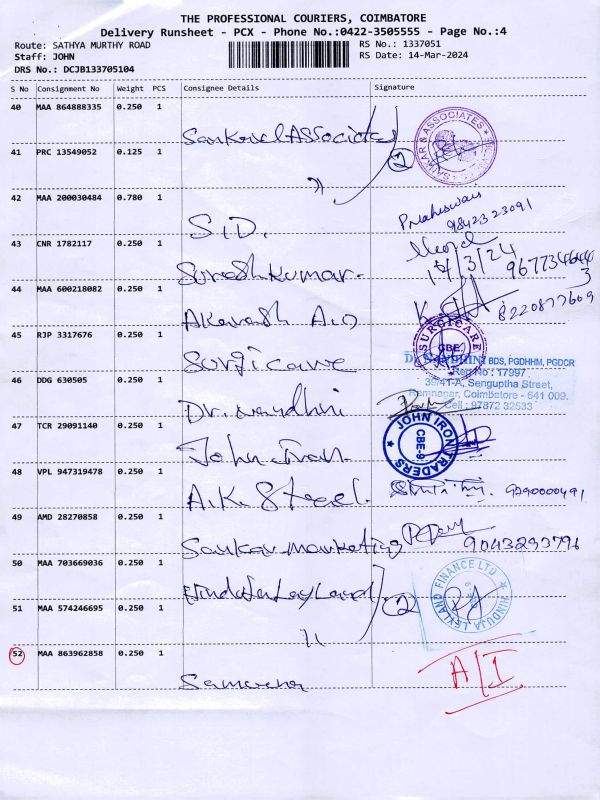 THE PROFESSIONAL COURIERS, COIMBATORE
Delivery Runsheet - PCX - Phone No.:0422-3505555 - Page No.:4
Route: SATHYA MURTHY ROAD
RS No.: 1337051
Staff: JOHN
RS Date: 14-Mar-2024
DRS No.: DCJB133705104
S No Consignment No Weight PCS Consignee Details Signature
40 MAA 864888335 0.250 1
Sankar & Associates
SANKAR & ASSOCIATES
41 PRC 13549052 0.125 1
2
〃
42 MAA 200030484 0.780 1
S.D.
Maheswari
9842323091
43 CNR 1782117 0.250 1
Suresh Kumar.
14/3/24
44 MAA 600218082 0.250 1
Akavash A.D
8220877609
45 RJP 3317676 0.250 1
Surgicare
SURGICARE
CBE
46 DDG 630505 0.250 1
Dr. Nandhini
Dr. NANDHINI BDS, PGDHHM, PGDCR
Reg No : 17997
39/41-A, Senguptha Street,
Ramnagar, Coimbatore - 641 009.
Cell : 97872 32533
47 TCR 29091140 0.250 1
John Iron.
JOHN IRON TRADERS
CBE-9
48 VPL 947319478 0.250 1
A.K. Steel.
9290000491
49 AMD 28270858 0.250 1
Sankar Marketing
9043293796
50 MAA 703669036 0.250 1
Hinduja Leyland
HINDUJA LEYLAND FINANCE LTD
51 MAA 574246695 0.250 1
2
〃
52 MAA 863962858 0.250 1
A/I